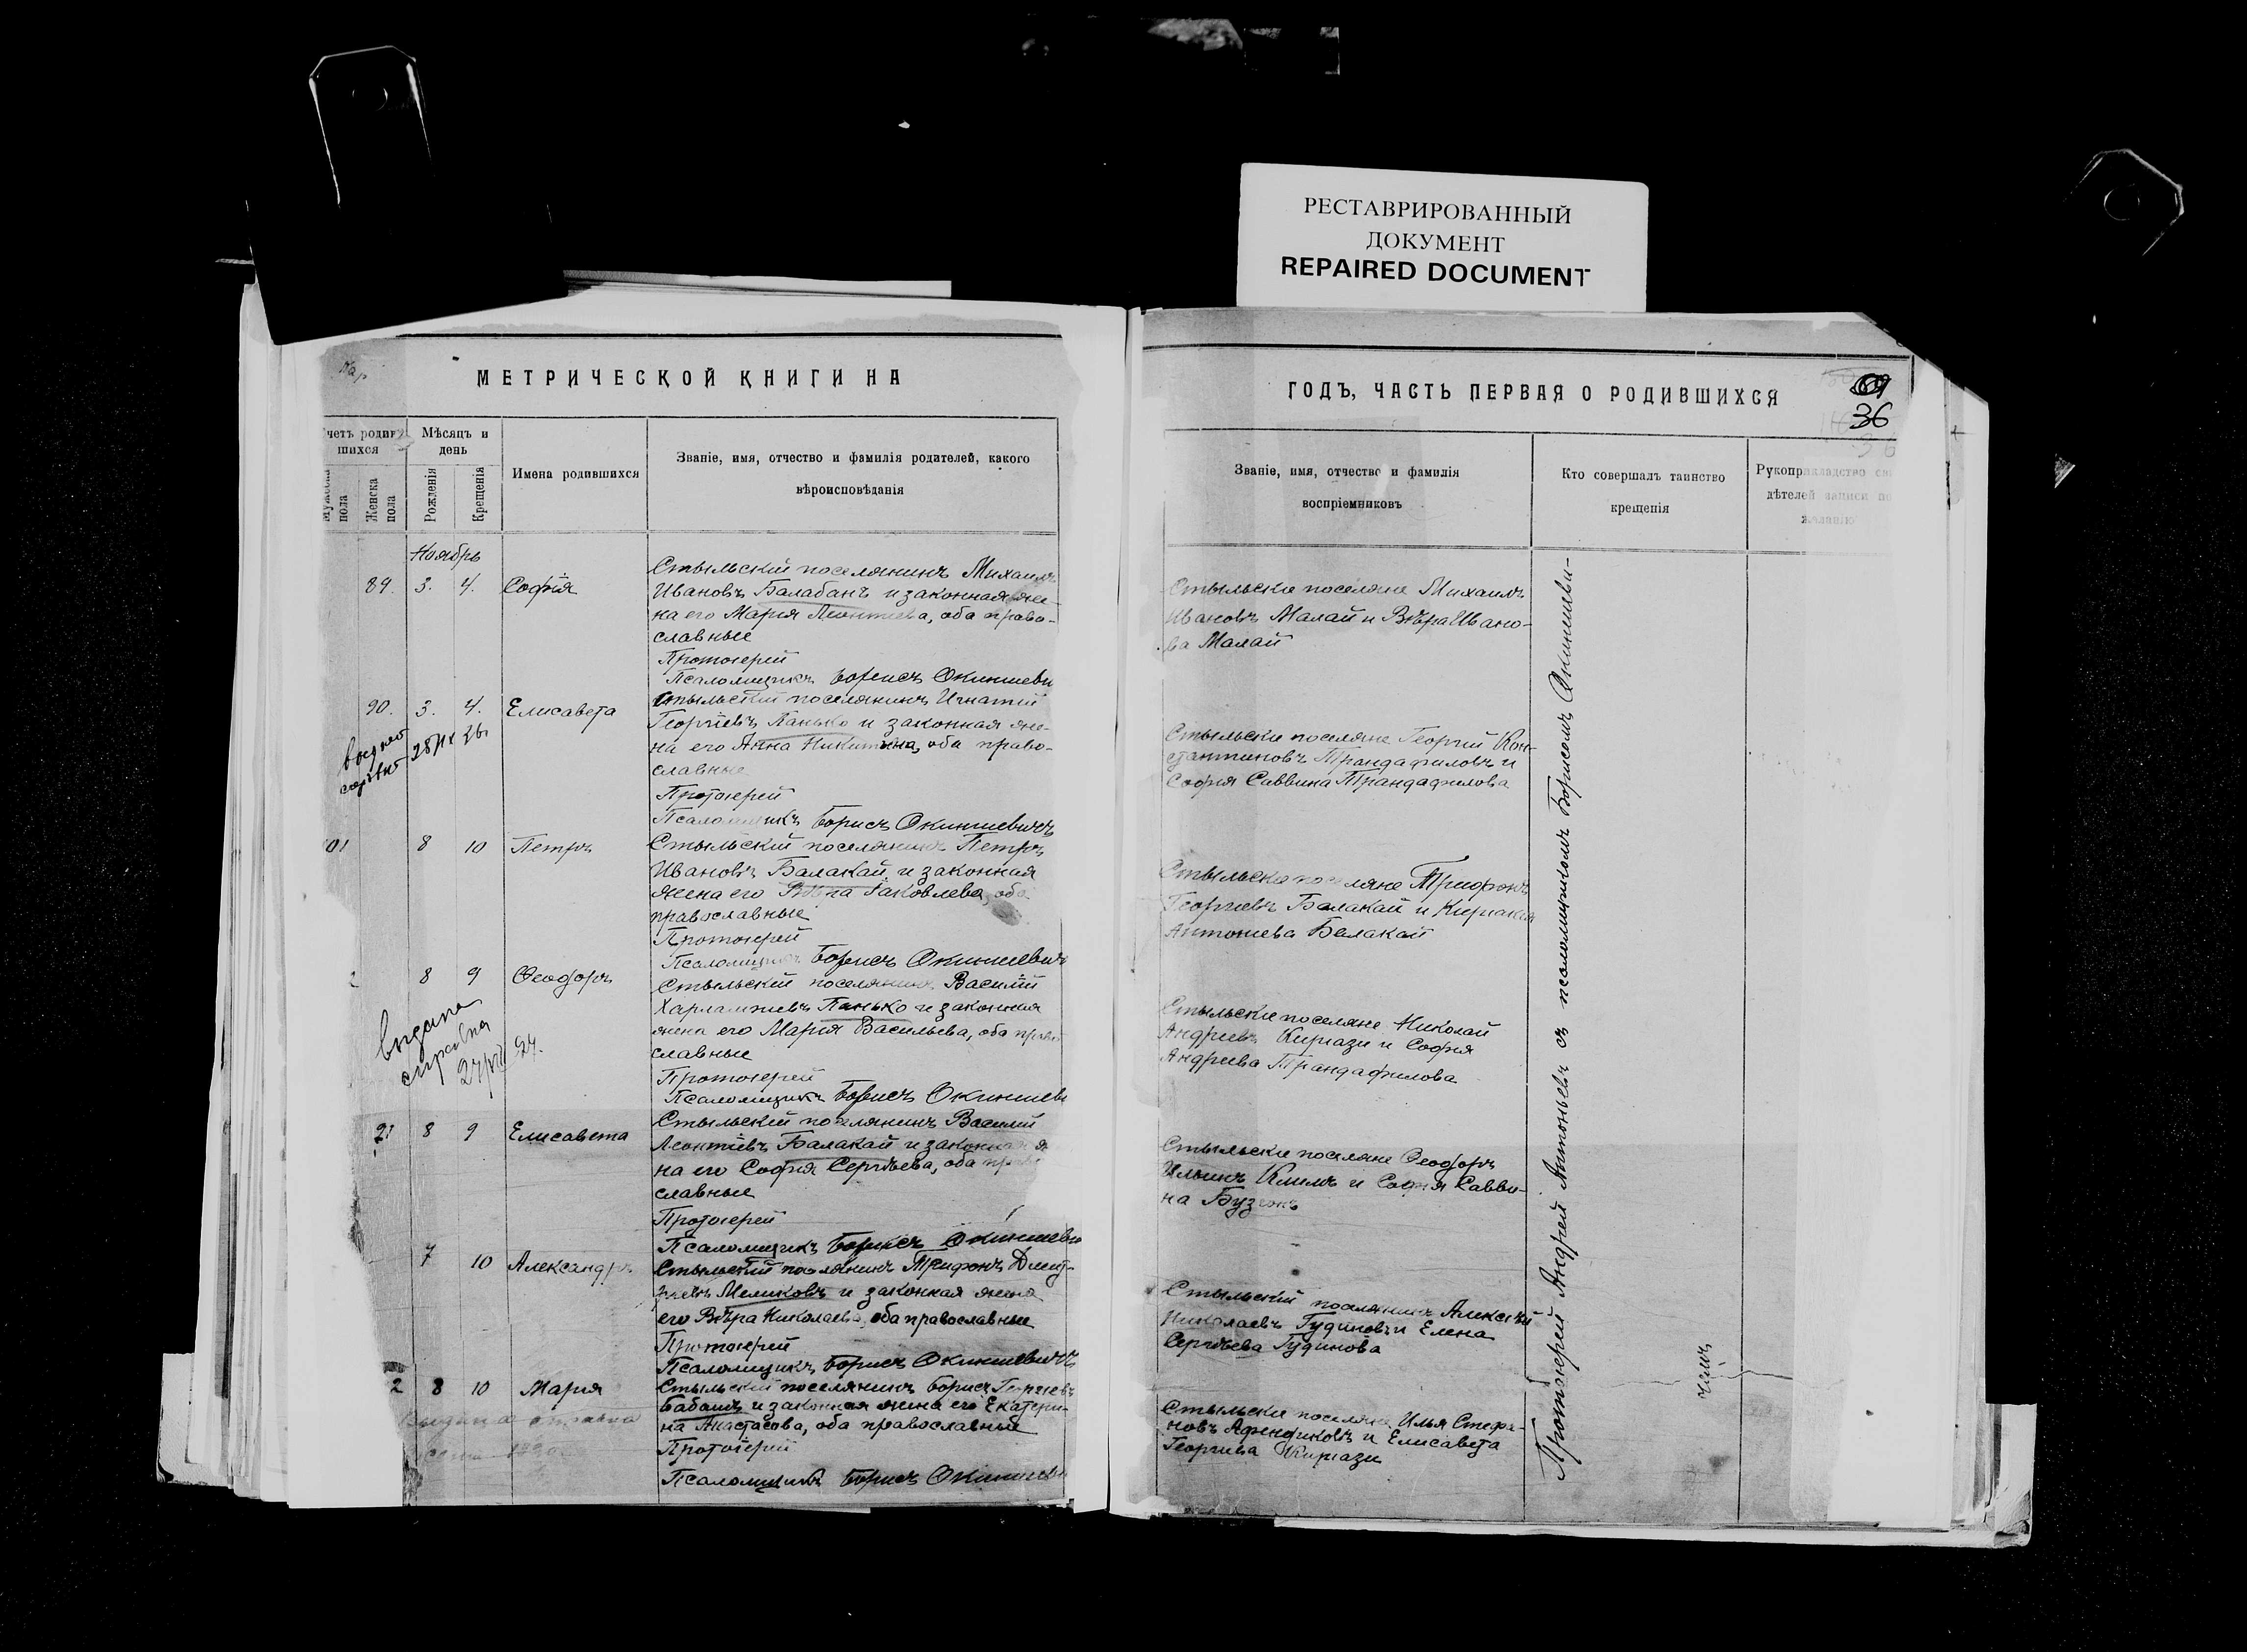 РЕСТАВРИРОВАННЫЙ
ДОКУМЕНТ
REPAIRED DOCUMENT
МЕТРИЧЕСКОЙ КНИГИ НА
четъ родив
шихся
Мѣсяцъ и
день
Имена родившихся
Званіе, имя, отчество и фамилія родителей, какого
вѣроисповѣданія
пола
Женска
пола
Рожденія
Крещенія
Ноябрь
89. 3. 4. Софія
Стыльскій поселянинъ Михаилъ
Ивановъ Балабанъ и законная же-
на его Марія Леонтіева, оба право-
славные
Протоіерей
Псаломщикъ Борисъ Окиншеви
90. 3. 4. Елисавета
Стыльскій поселянинъ Игнатій
Георгіевъ Панько и законная же-
на его Анна Никитина, оба право-
славные
Протоіерей
Псаломщикъ Борисъ Окиншевичъ
101 8 10 Петръ
Стыльскій поселянинъ Петръ
Ивановъ Балакай и законная
жена его Яковлева, оба
православные
Протоіерей
Псаломщикъ Борисъ Окиншевичъ
2 8 9 Ѳеодоръ
Стыльскій поселянинъ Василій
Харлампіевъ Панько и законная
жена его Марія Васильева, оба прав
славные
Протоіерей
Псаломщикъ Борисъ Окиншеви
выдана
справка
24.
91 8 9 Елисавета
Стыльскій поселянинъ Василій
Леонтіевъ Балакай и законная ж
на его Софія Сергѣева, оба право
славные
Протоіерей
Псаломщикъ Борисъ Окиншеви
7 10 Александръ
Стыльскій поселянинъ Трифонъ Дмит-
ріевъ Меликовъ и законная жена
его Вѣра Николаева, оба православные
Протоіерей
Псаломщикъ Борисъ Окиншевичъ
2 8 10 Марія
Стыльскій поселянинъ Борисъ Георгіевъ
Бабашъ и законная жена его Екатери-
на Анастасова, оба православные
Протоіерей
Псаломщикъ Борисъ Окиншеви
Выдана справка
ГОДЪ, ЧАСТЬ ПЕРВАЯ О РОДИВШИХСЯ
69
36
Званіе, имя, отчество и фамилія
воспріемниковъ
Кто совершалъ таинство
крещенія
Рукоприкладство сви
дѣтелей записи по
желанію
Стыльскіе поселяне Михаилъ
Ивановъ Малай и Вѣра Ивано-
ва Малай
Стыльскіе поселяне Георгій Кон-
стантиновъ Трандафиловъ и
Софія Саввина Трандафилова
Стыльскіе поселяне Трифонъ
Георгіевъ Балакай и Киріакія
Антониева Балакай
Стыльскіе поселяне Николай
Андреевъ Киріази и Софія
Андреева Трандафилова
Стыльскіе поселяне Ѳеодоръ
Ильинъ Климъ и Софія Савви-
на
Стыльскій поселянинъ Алексѣй
Николаевъ Гудиновъ и Елена
Сергѣева Гудинова
Стыльскіе поселяне Илья Стефа-
новъ Афендиковъ и Елисавета
Георгіева Киріази
Протоіерей Андрей Антоньевъ съ псаломщикомъ Борисомъ Окиншеви-
чемъ